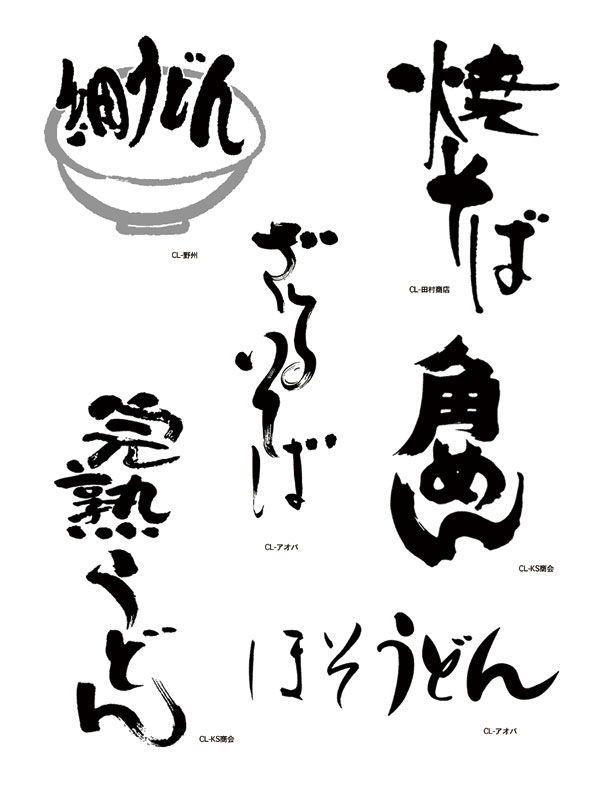 細うどん
CL-野州
焼そば
CL-田村商店
ざるそば
CL-アオバ
角めん
CL-KS商会
完熟うどん
CL-KS商会
ほそうどん
CL-アオバ